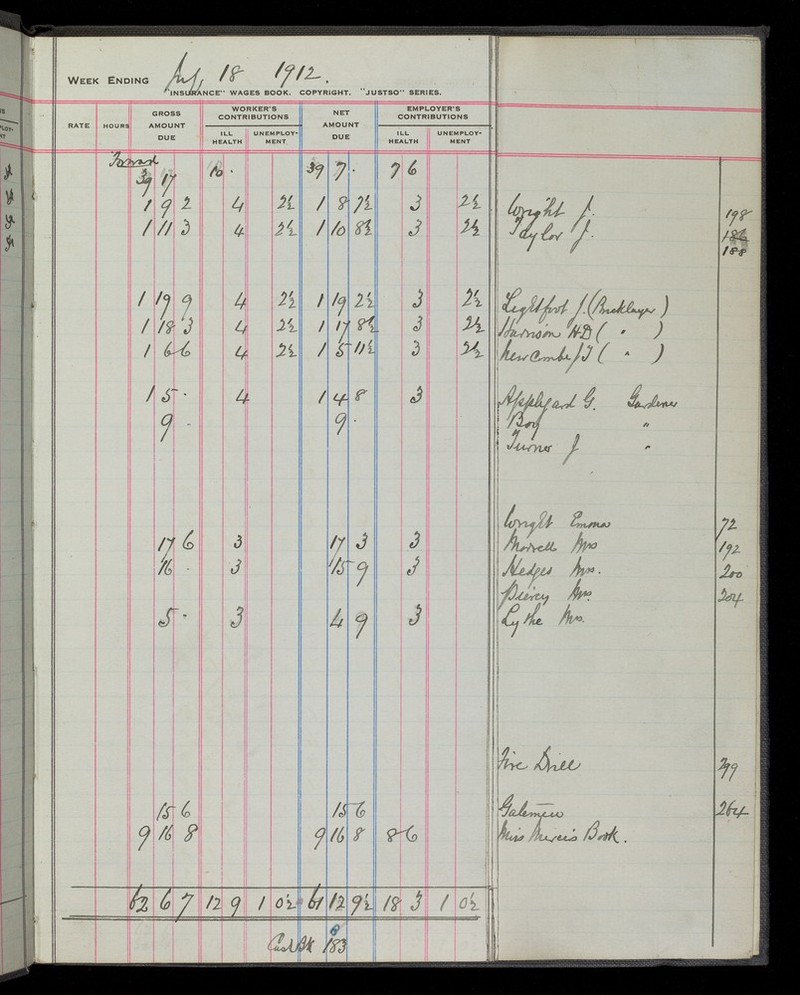 WEEK ENDING July 18 1912.
"INSURANCE" WAGES BOOK. COPYRIGHT. "JUSTSO" SERIES.
RATE HOURS GROSS AMOUNT DUE WORKER'S CONTRIBUTIONS NET AMOUNT DUE EMPLOYER'S CONTRIBUTIONS
ILL HEALTH UNEMPLOYMENT ILL HEALTH UNEMPLOYMENT
Forward
39 17 10 . 39 7 . 7 6
1 9 2 4 2½ 1 8 7½ 3 2½ Wright J. 198
1 11 3 4 2½ 1 10 8½ 3 2½ Taylor J. 186
188
1 19 9 4 2½ 1 19 2½ 3 2½ Lightfoot J. (Bricklayer)
1 18 3 4 2½ 1 17 8½ 3 2½ Harrison H.D ( " )
1 6 6 4 2½ 1 5 11½ 3 2½ Newcombe J J ( " )
1 5 . 4 1 4 8 3 Applegard G. Gardener
9 . 9 . Boy "
Turner J "
Wright Emma 72
17 6 3 17 3 3 Morrell Mrs 192
16 . 3 15 9 3 Hedges Mrs. 200
Piercy Mrs. 204
5 . 3 4 9 3 Lythe Mrs.
Fire Drill 299
15 6 15 6 Galemen 264
9 16 8 9 16 8 8 6 Miss Book.
62 6 7 12 9 1 0½ 61 12 9½ 18 3 1 0½
Cash Bk 183